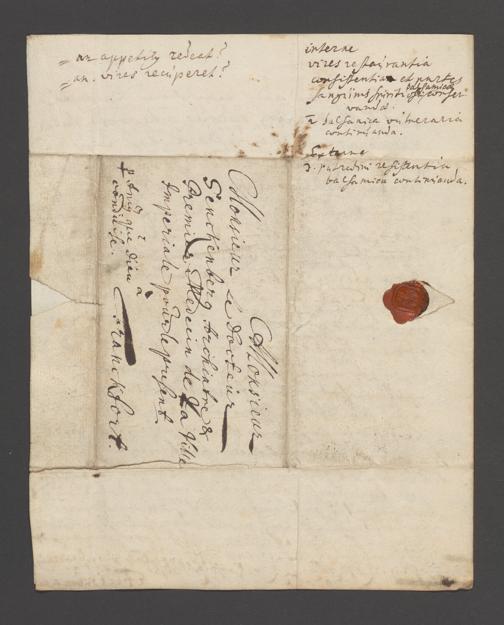 an appetitg redeat?
an. vires recuperet?
interne
vires restaurantia
consistentia et partes
sanguinis spirit balsamicas conser
vanda.
2 balsamica vulneraria
continuanda.
Externe
3. putredini resistentia
balsamica continuanda.
Monsieur
Monsieur Le Docteur
Senckenberg Archiatre &
Premier Médecin de la Ville
Imperiale pour le present
à
Franckfort.
Amy que Dieu
conduise.